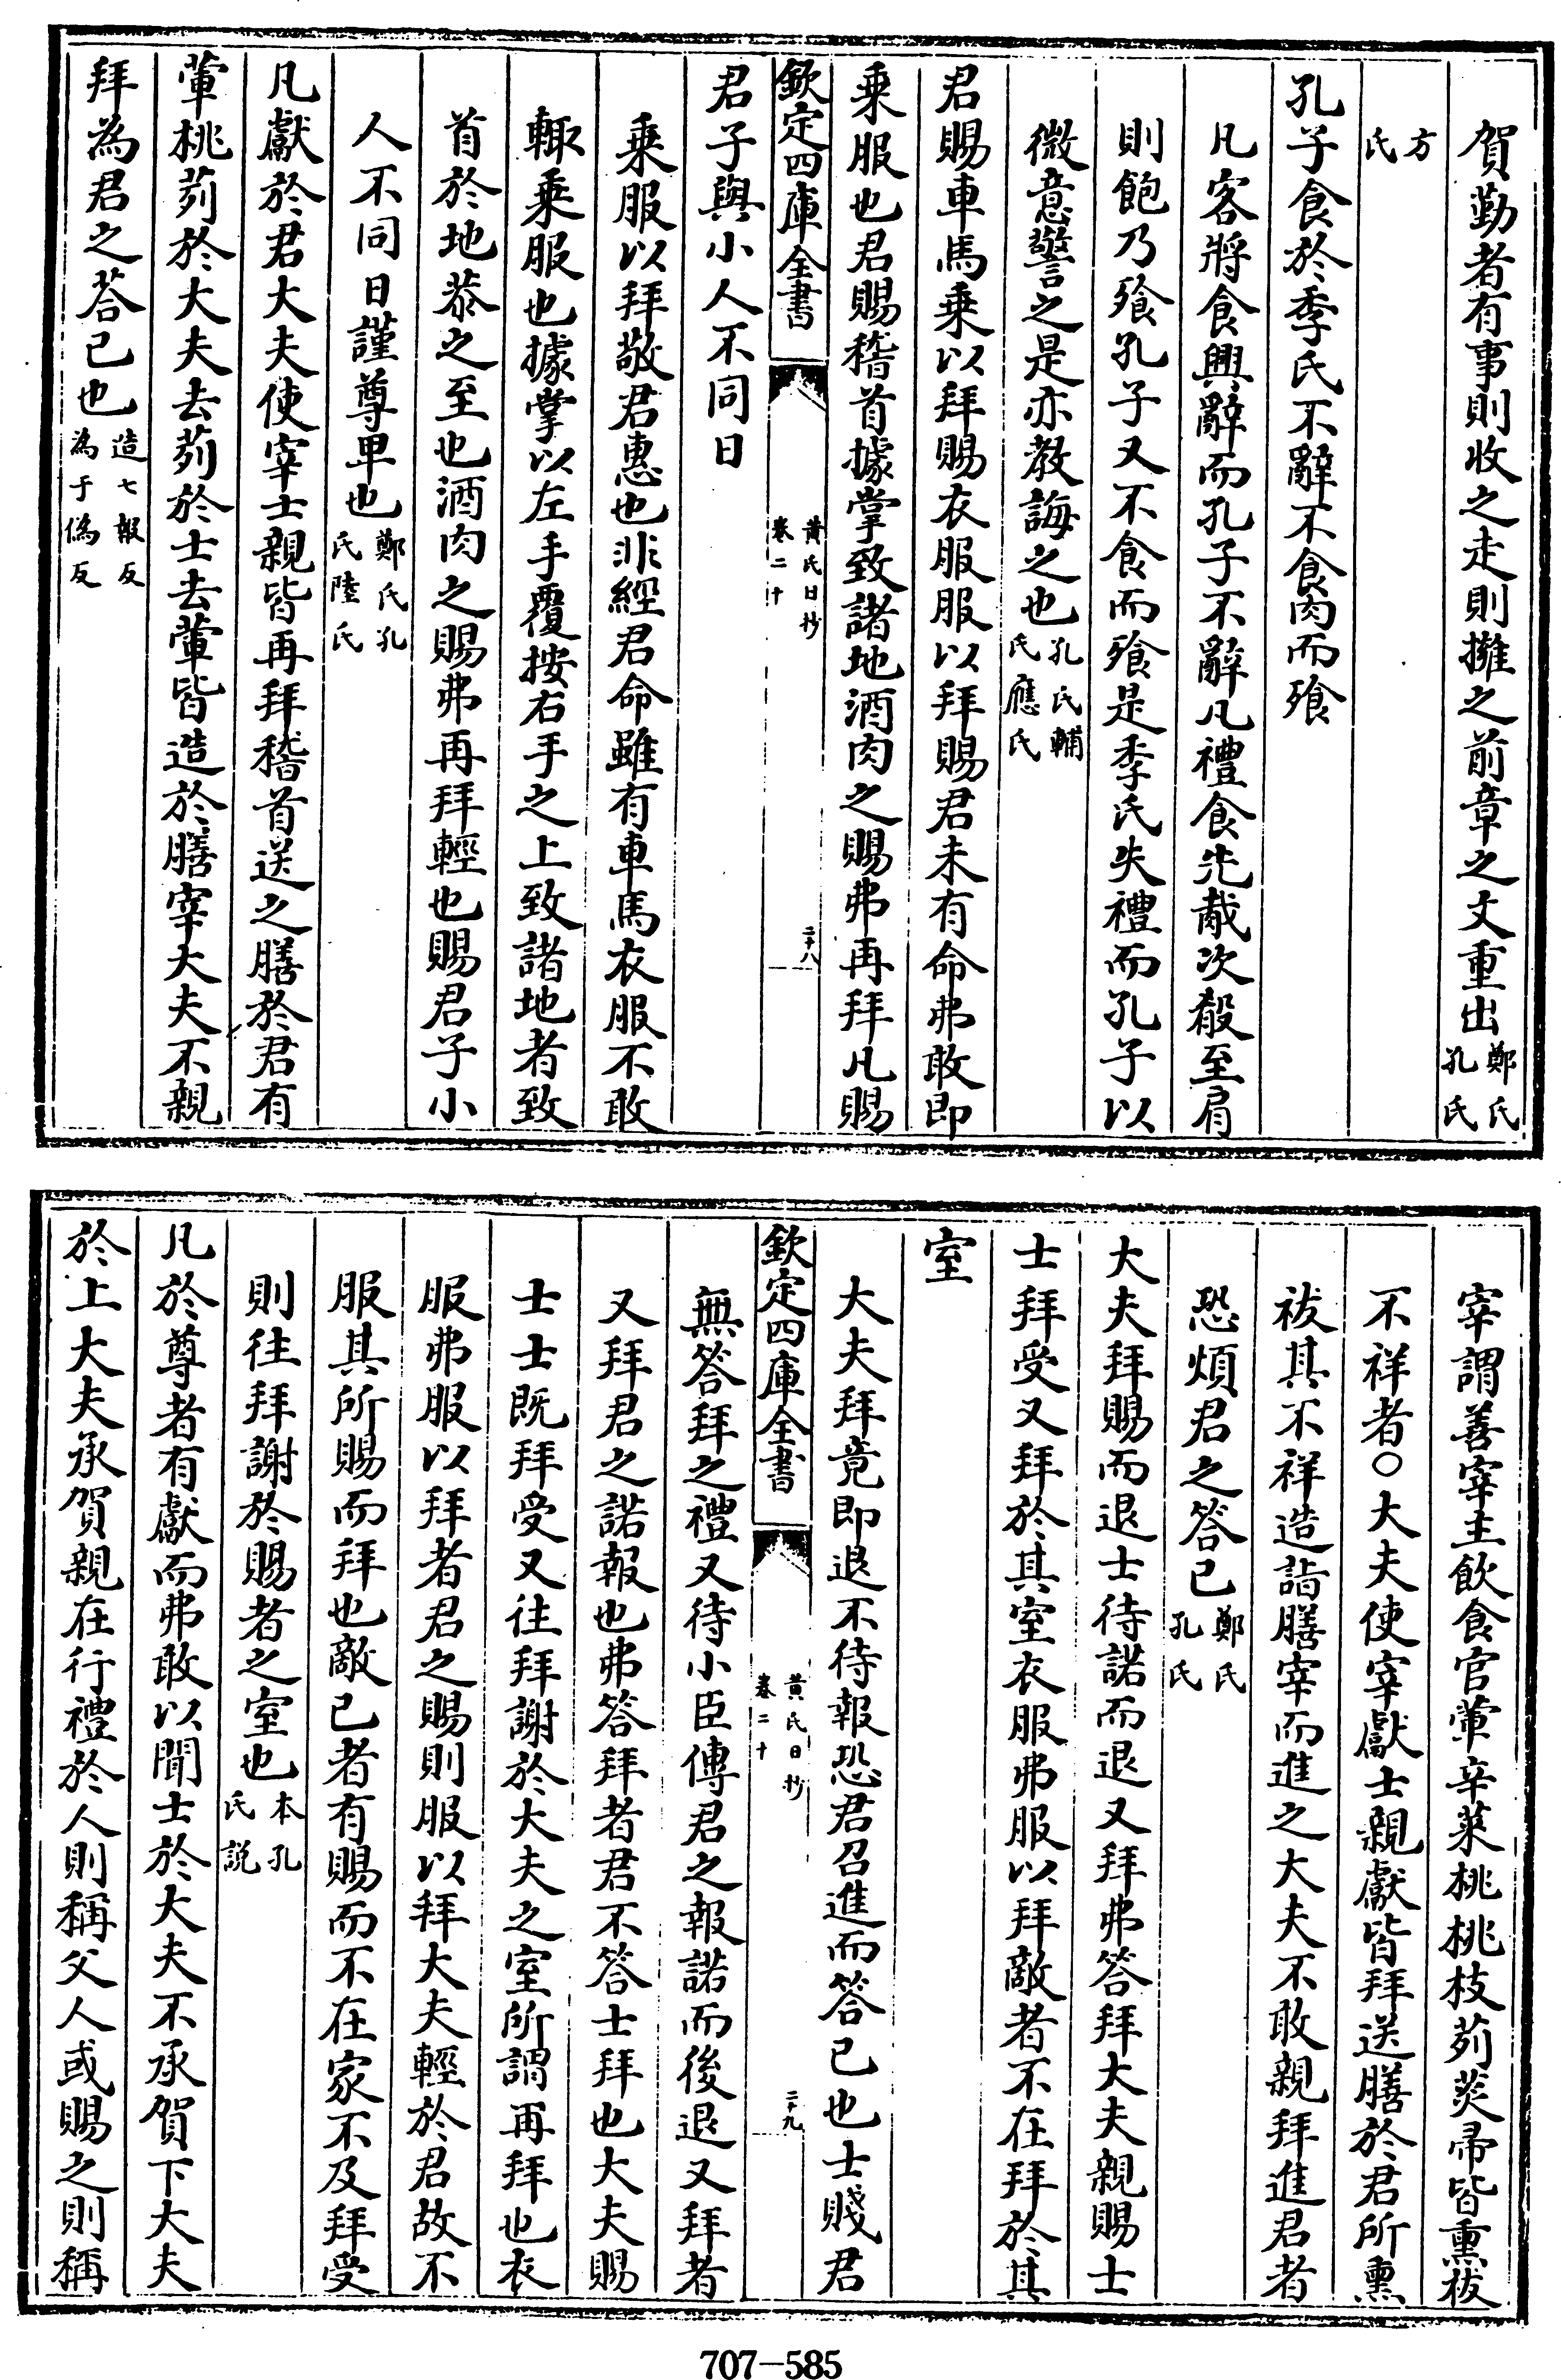 賀勤者有事則收之走則擁之前章之文重出鄭氏孔氏
方氏
孔子食於季氏不辭不食肉而飱
凡客將食興辭而孔子不辭凡禮食先胾次殽至肩
則飽乃飱孔子又不食而飱是季氏失禮而孔子以
微意警之是亦教誨之也孔氏輔氏應氏
君賜車馬乗以拜賜衣服服以拜賜君未有命弗敢即
乗服也君賜稽首據掌致諸地酒肉之賜弗再拜凡賜
欽定四庫全書
黄氏日抄
卷二十
二十八
君子與小人不同日
乗服以拜敬君惠也非經君命雖有車馬衣服不敢
輙乗服也據掌以左手覆按右手之上致諸地者致
首於地㳟之至也酒肉之賜弗再拜輕也賜君子小
人不同日謹尊卑也鄭氏孔氏陸氏
凡獻於君大夫使宰士親皆再拜稽首送之膳於君有
葷桃茢於大夫去茢於士去葷皆造於膳宰大夫不親
拜為君之荅已也造七報反為于偽反
宰謂善宰主飲食官葷辛菜桃桃枝茢炎帚皆熏祓
不祥者○大夫使宰獻士親獻皆拜送膳於君所熏
祓其不祥造詣膳宰而進之大夫不敢親拜進君者
恐煩君之答已鄭氏孔氏
大夫拜賜而退士待諾而退又拜弗答拜大夫親賜士
士拜受又拜於其室衣服弗服以拜敵者不在拜於其
室
大夫拜竟即退不待報恐君召進而答已也士賤君
欽定四庫全書
黄氏日抄
卷二十
二十九
無答拜之禮又待小臣傳君之報諾而後退又拜者
又拜君之諾報也弗答拜者君不答士拜也大夫賜
士士既拜受又往拜謝於大夫之室所謂再拜也衣
服弗服以拜者君之賜則服以拜大夫輕於君故不
服其所賜而拜也敵已者有賜而不在家不及拜受
則往拜謝於賜者之室也本孔氏説
凡於尊者有獻而弗敢以聞士於大夫不承賀下大夫
於上大夫承賀親在行禮於人則稱父人或賜之則稱
707-585